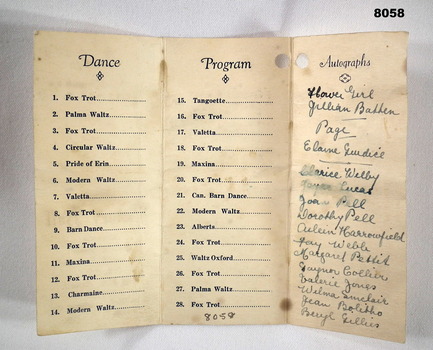 8058
Dance
1. Fox Trot
2. Palma Waltz
3. Fox Trot
4. Circular Waltz
5. Pride of Erin
6. Modern Waltz
7. Valetta
8. Fox Trot
9. Barn Dance
10. Fox Trot
11. Maxina
12. Fox Trot
13. Charmaine
14. Modern Waltz
Program
15. Tangoette
16. Fox Trot
17. Valetta
18. Fox Trot
19. Maxina
20. Fox Trot
21. Can. Barn Dance
22. Modern Waltz
23. Alberts
24. Fox Trot
25. Waltz Oxford
26. Fox Trot
27. Palma Waltz
28. Fox Trot
8058
Autographs
Flower Girl
Jillian Batten
Page
Elaine
Clarice Welby
Lucas
Joan Pell
Dorothy Pell
Aileen Harrowfield
Fay Webb
Margaret Pettit
Gaynor Collier
Valerie Jones
Welma Sinclair
Jean Bolitho
Beryl Gillies